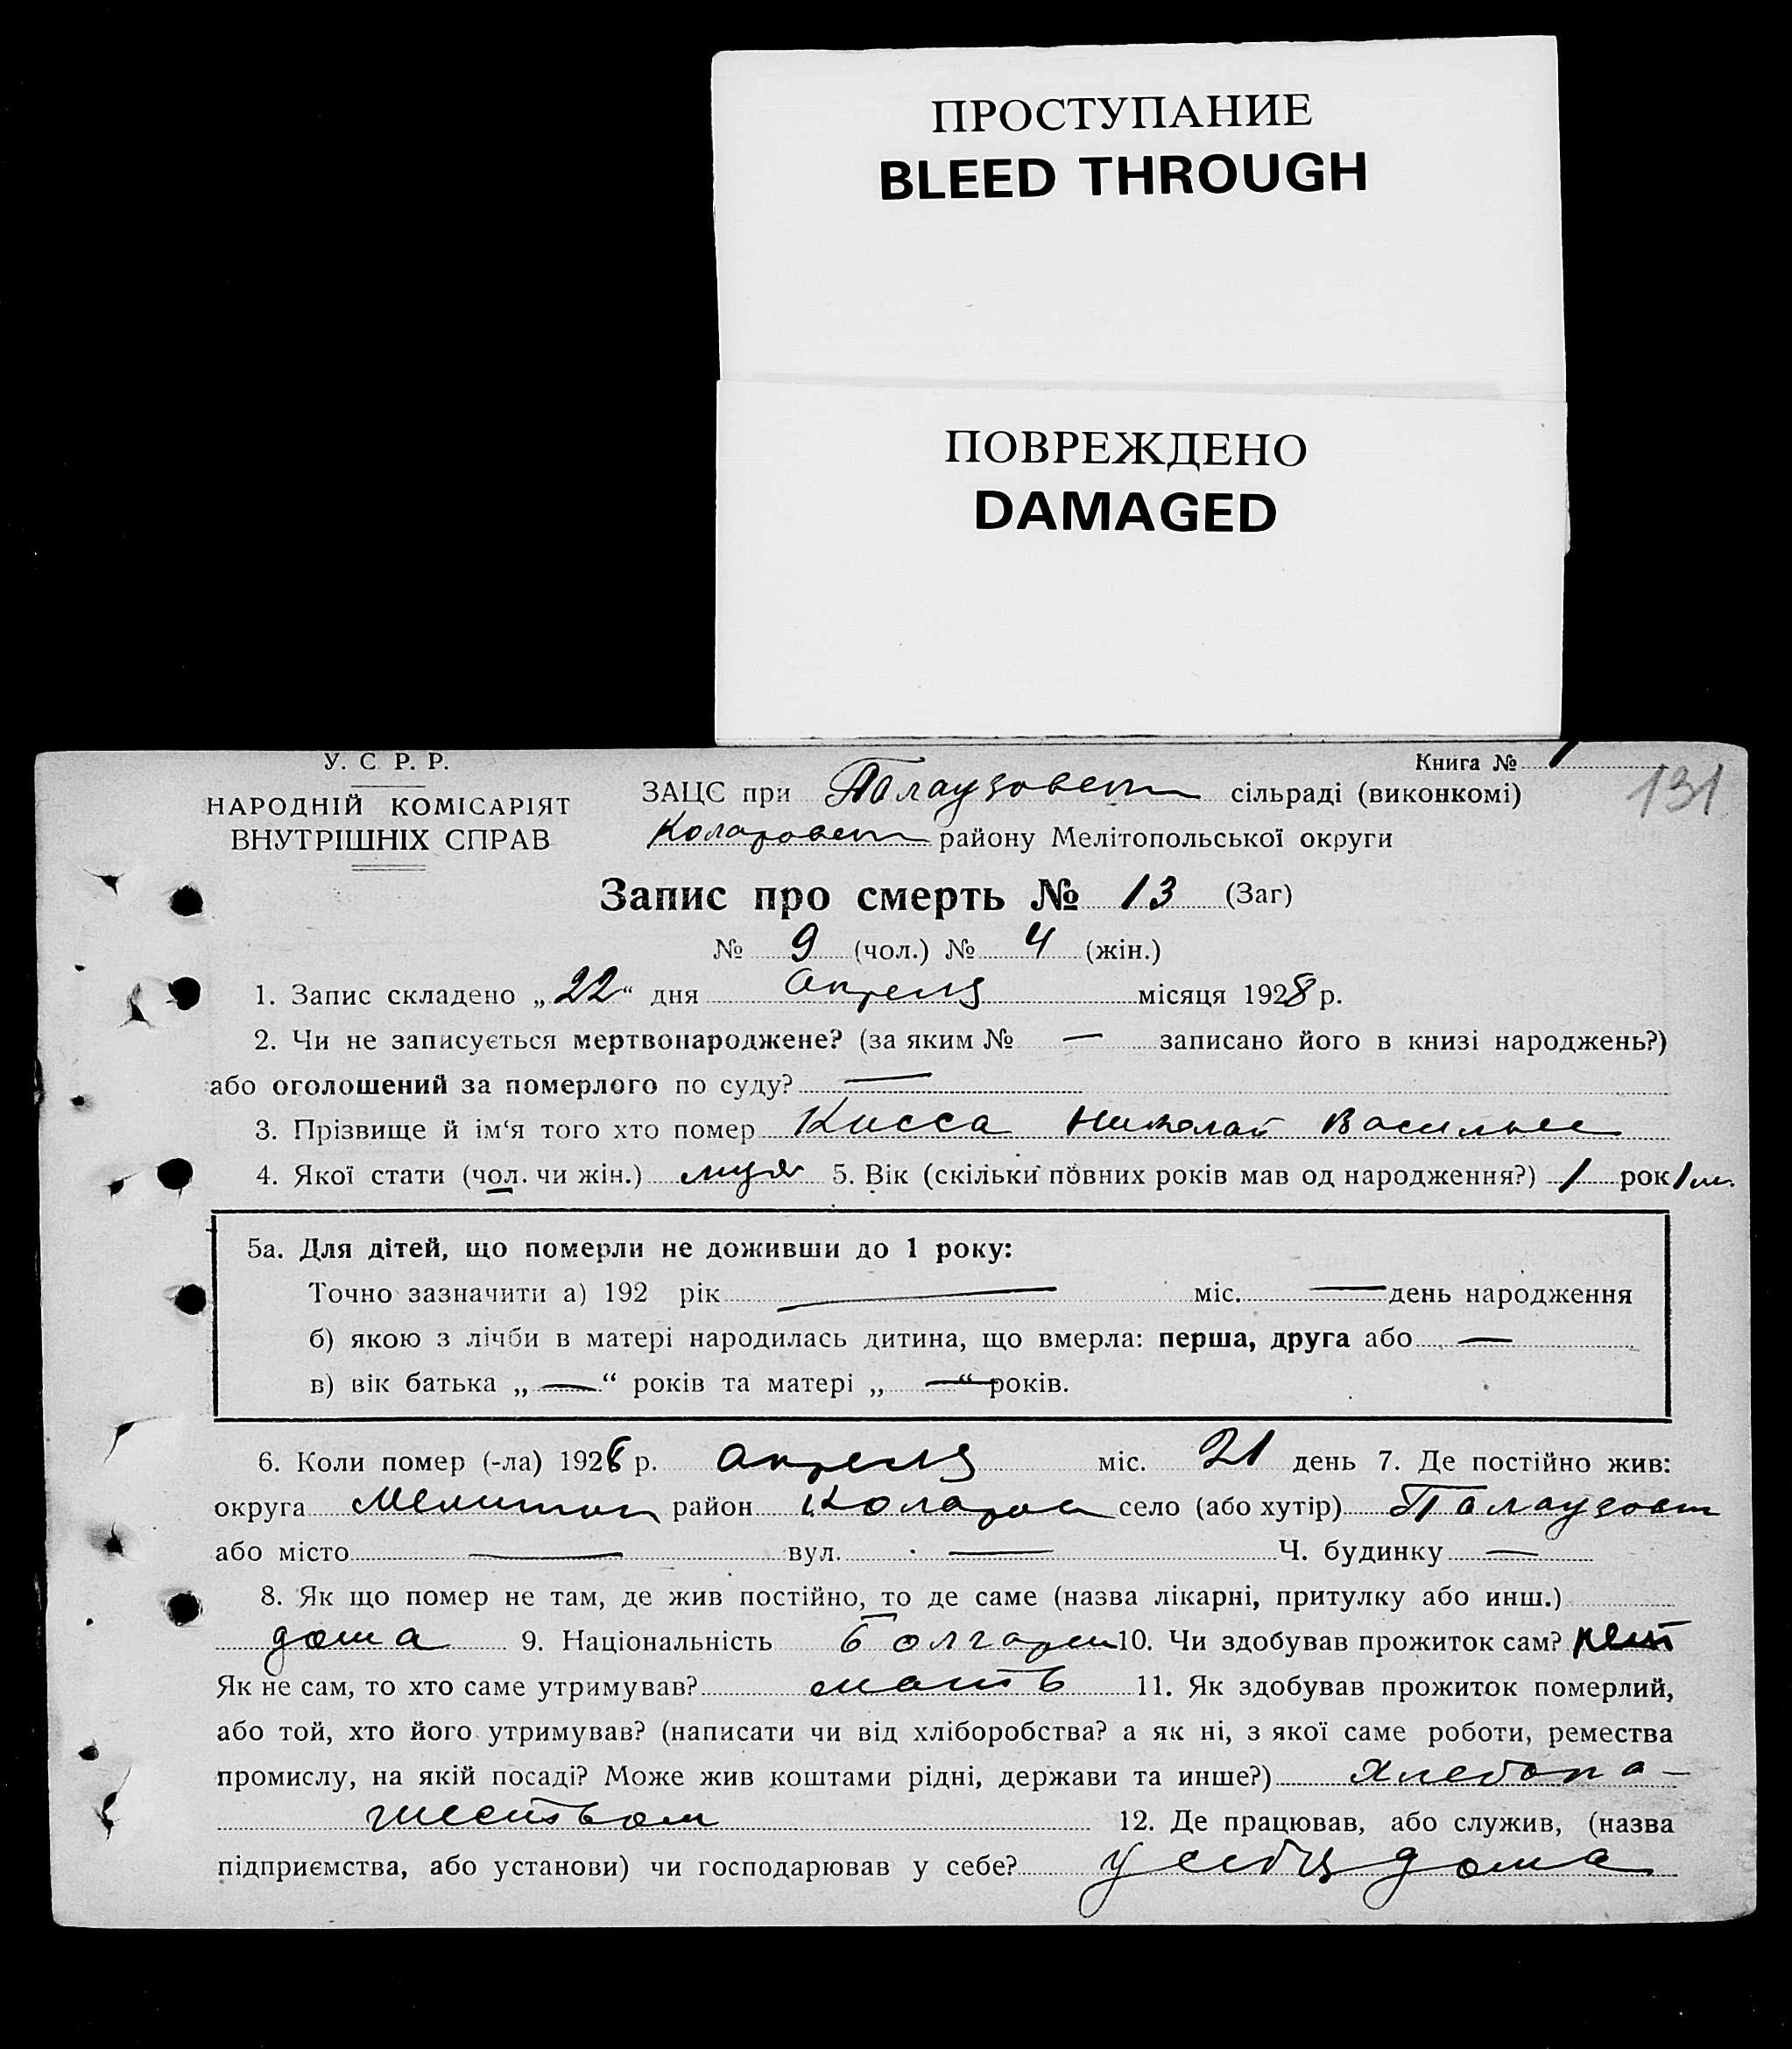 ПРОСТУПАНИЕ
BLEED THROUGH
ПОВРЕЖДЕНО
DAMAGED
У. С. Р. Р.
Книга № 1
131
НАРОДНІЙ КОМІСАРІЯТ
ВНУТРІШНІХ СПРАВ
ЗАЦС при Палаузовск сільраді (виконкомі)
Коларовск району Мелітопольської округи
Запис про смерть № 13 (Заг)
№ 9 (чол.) № 4 (жін.)
1. Запис складено „22“ дня апреля місяця 1928 р.
2. Чи не записується мертвонароджене? (за яким № — записано його в книзі народжень?)
або оголошений за померлого по суду? —
3. Прізвище й ім‘я того хто помер Кисса Николай Василье
4. Якої стати (чол. чи жін.) муж 5. Вік (скільки повних років мав од народження?) 1 рок 1 м.
5а. Для дітей, що померли не доживши до 1 року:
Точно зазначити а) 192 рік — міс. — день народження
б) якою з лічби в матері народилась дитина, що вмерла: перша, друга або —
в) вік батька „—“ років та матері „—“ років.
6. Коли помер (-ла) 1928 р. апреля міс. 21 день 7. Де постійно жив:
округа Мелитоп район Коларов село (або хутір) Палаузовк
або місто — вул. — Ч. будинку —
8. Як що помер не там, де жив постійно, то де саме (назва лікарні, притулку або инш.)
дома 9. Національність болгарин 10. Чи здобував прожиток сам? нет
Як не сам, то хто саме утримував? мать 11. Як здобував прожиток померлий,
або той, хто його утримував? (написати чи від хліборобства? а як ні, з якої саме роботи, ремества
промислу, на якій посаді? Може жив коштами рідні, держави та инше?) Хлебопа-
шеством 12. Де працював, або служив, (назва
підприємства, або установи) чи господарював у себе? у себя дома